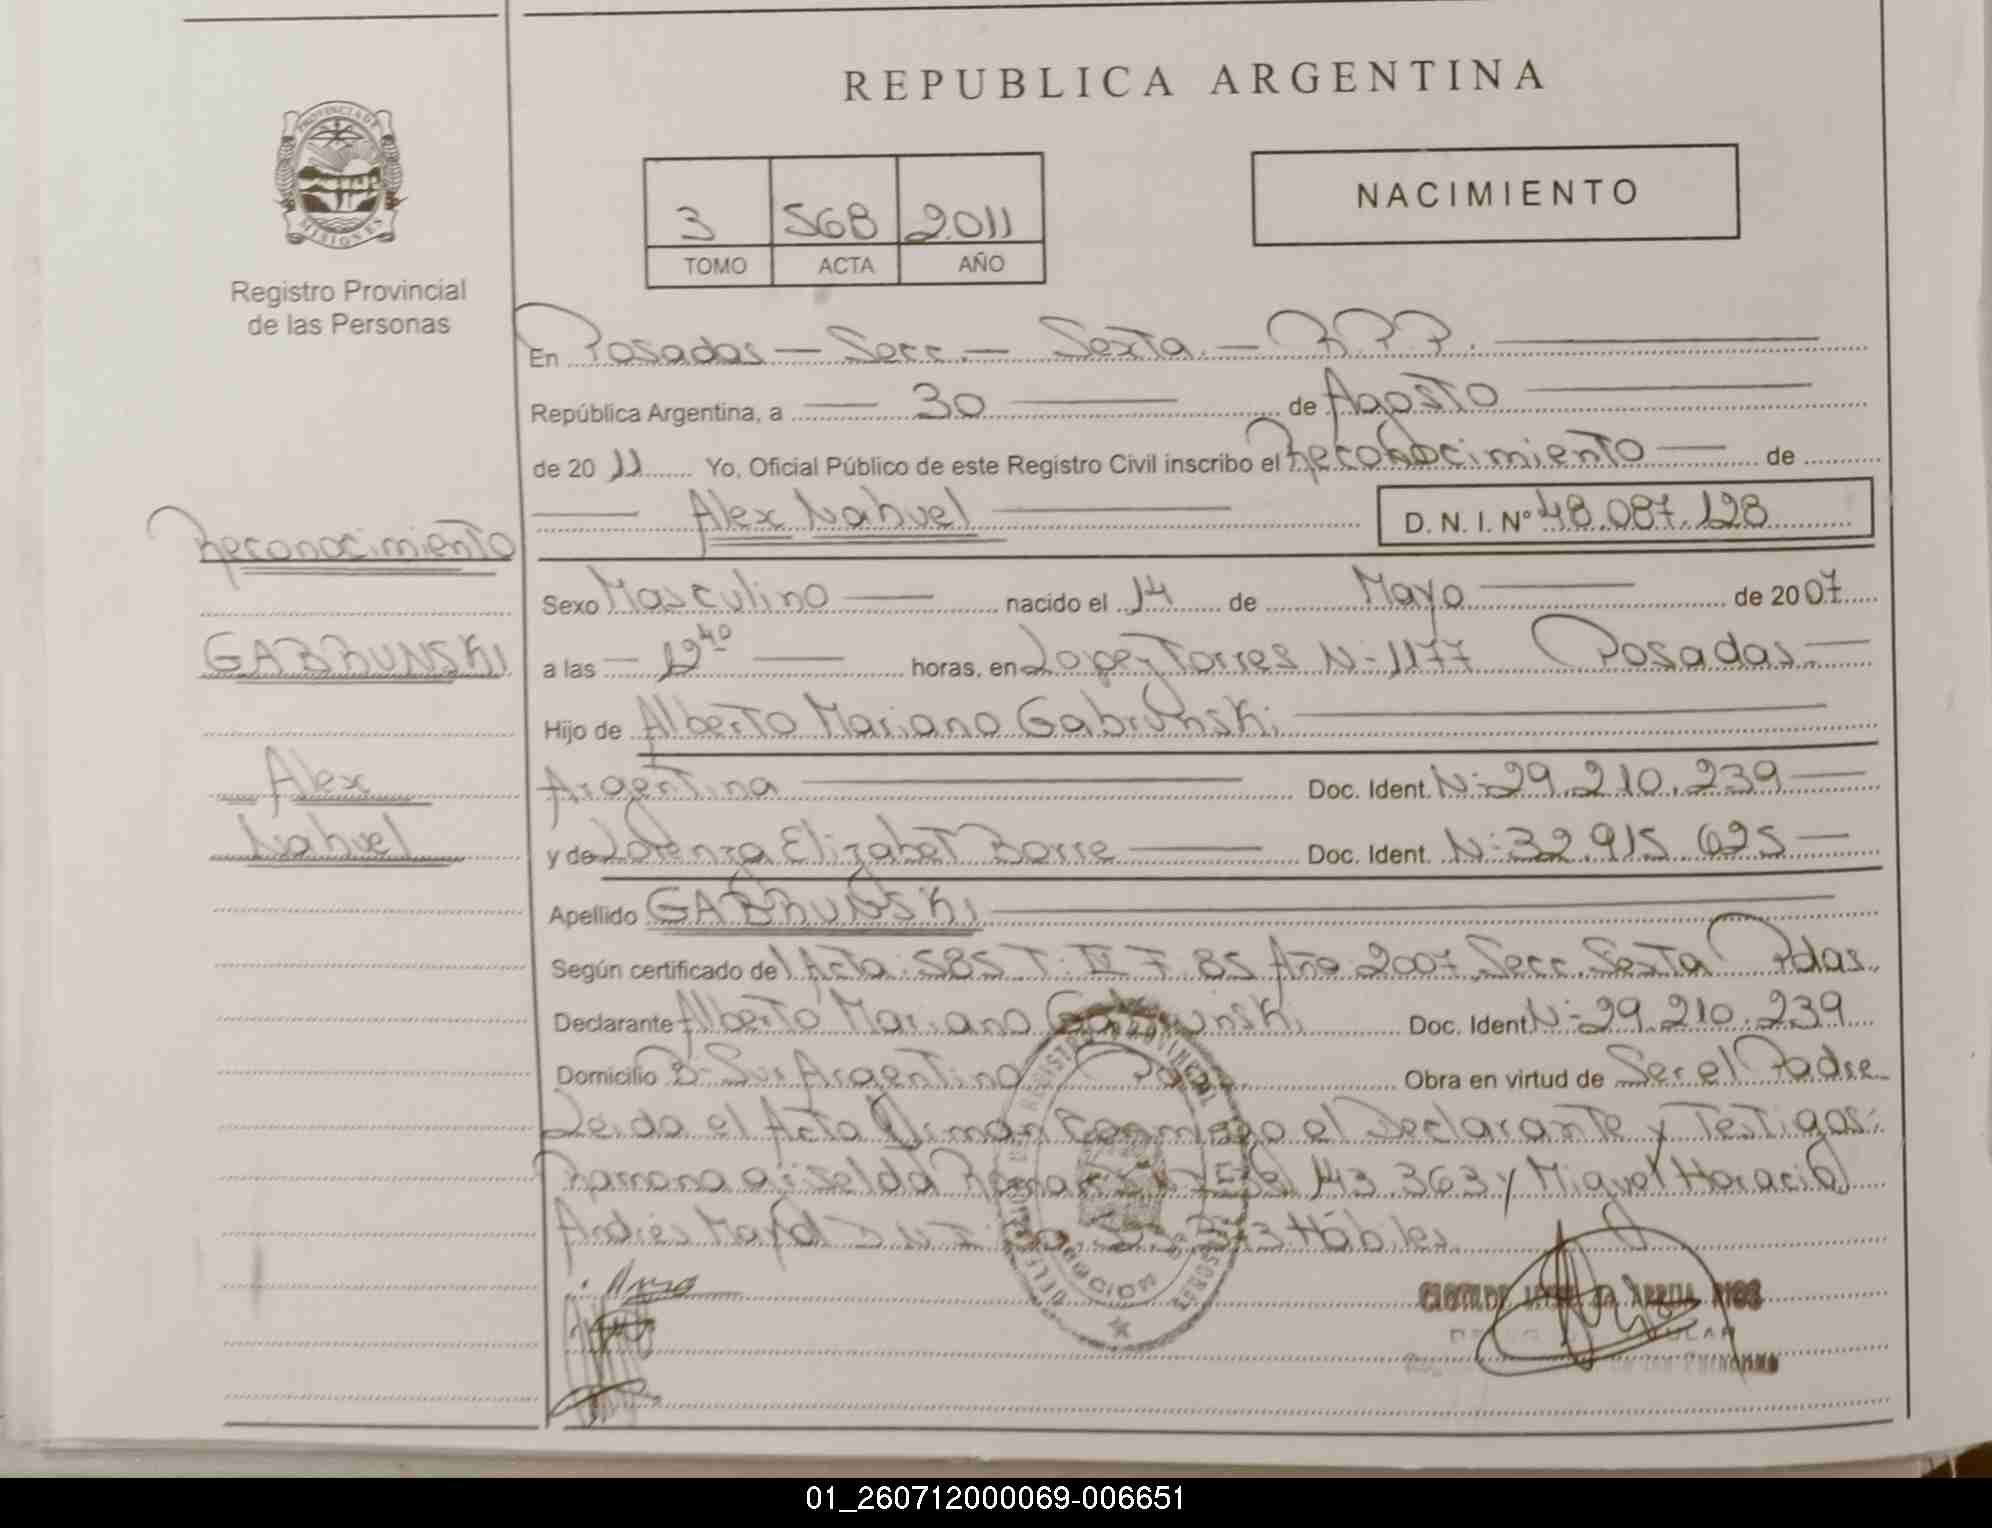 REPUBLICA ARGENTINA
PROVINCIA DE MISIONES
Registro Provincial
de las Personas
NACIMIENTO
3 568 2011
TOMO ACTA AÑO
En Posadas — Secc. — Sexta. — R.P.P.
República Argentina, a — 30 — de Agosto
de 2011 Yo, Oficial Público de este Registro Civil inscribo el Reconocimiento — de
Alex Nahuel — D. N. I. Nº 48.087.128
Sexo Masculino — nacido el 14 de Mayo — de 2007
a las — 12 40 — horas, en Lopez Torres N- 1177 Posadas —
Hijo de Alberto Mariano Gabrunski
Argentina — Doc. Ident. N- 29.210.239 —
y de Lorenza Elizabet Borre — Doc. Ident. N- 32.915.625 —
Apellido GABRUNSKI
Según certificado de Acta: 585 T: IV F 85 Año 2007 Secc. Sexta Pdas.
Declarante Alberto Mariano Gabrunski Doc. Ident. N- 29.210.239
Domicilio B- Sur Argentino Obra en virtud de Ser el Padre
Leida el Acta Firman conmigo el Declarante y Testigos:
Ramona Griselda 143.363 y Miguel Horacio
Andrés Hábiles
Reconocimiento
GABRUNSKI
Alex
Nahuel
01_260712000069-006651